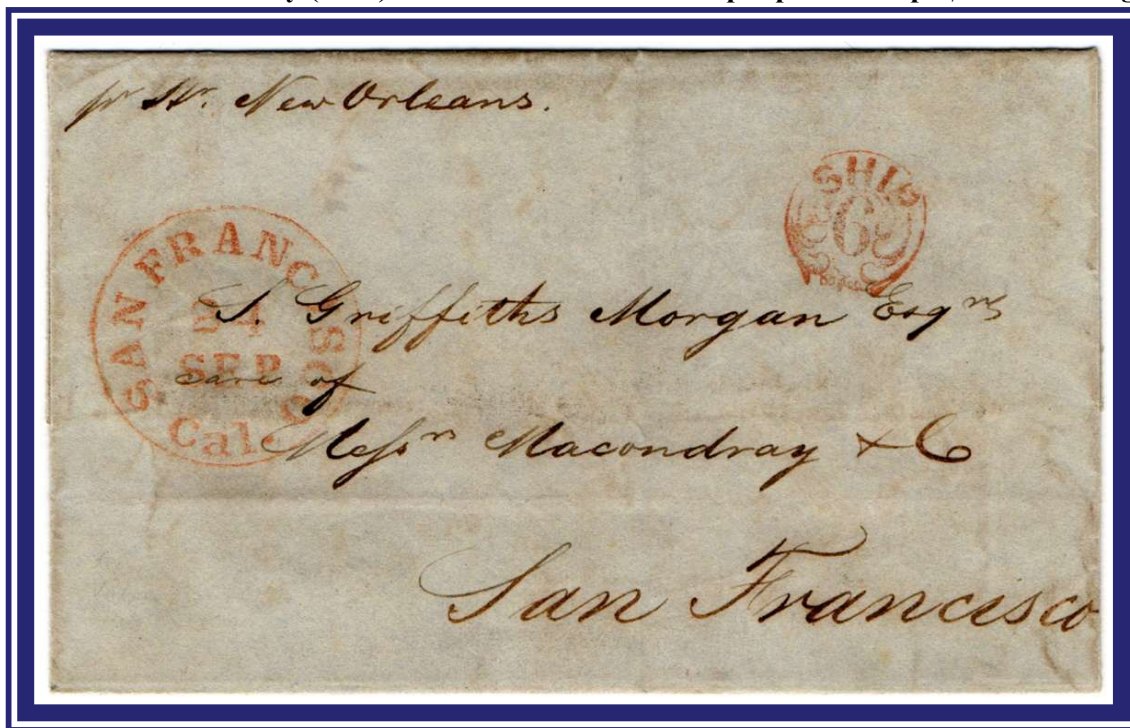 pr Str. New Orleans.
SHIP
6
SAN FRANCISCO
SEP
Cal.
S. Griffiths Morgan Esqre
care of
Messrs Macondray & Co
San Francisco